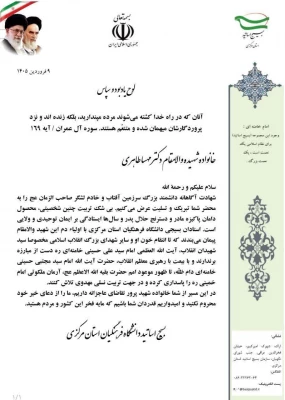 بسمه تعالی
جمهوری اسلامی ایران
۹ فروردین ۱۴۰۵
لوح یادبود و سپاس
آنان که در راه خدا کشته می‌شوند مرده مپندارید، بلکه زنده اند و نزد
پروردگارشان میهمان شده و متنعّم هستند. سوره آل عمران / آیه ۱۶۹
خانواده شهیده والامقام دکتر مهسا طاهری
سلام علیکم و رحمة الله
شهادت آگاهانه دانشمند بزرگ سرزمین آفتاب و خادم لشکر صاحب الزمان عج را به
محضر شما تبریک و تسلیت عرض می‌کنیم. بی شک تربیت چنین شخصیتی، محصول
دامان پاکیزه مادر و دسترنج حلال پدر و سال‌ها ایستادگی بر ایمان توحیدی و ولایی
است. استادان بسیجی دانشگاه فرهنگیان استان مرکزی با اولیاء دم این شهید والامقام
پیمان می‌بندند که تا انتقام خون او و سایر شهدای بزرگ انقلاب اسلامی مخصوصا سید
شهیدان انقلاب، آیت الله العظمی امام سید علی حسینی خامنه‌ای ره دست از مبارزه
برندارند و با بیعت با رهبری معظم انقلاب، حضرت آیت الله امام سید مجتبی حسینی
خامنه‌ای دام ظلّه، تا ظهور موعود امم حضرت بقیه الله الاعظم عج، آرمان ملکوتی امام
خمینی ره را پاسداری کرده و در جهت تربیت نسلی مهدوی تلاش کنند.
در این مسیر از شما خانواده شهید پرور تقاضای عاجزانه داریم، ما را از دعای خیر خود
محروم نکنید و امیدواریم قدردان شما باشیم که مایه فخر این کشور و مردم هستید.
بسیج اساتید دانشگاه فرهنگیان استان مرکزی
۱/۱